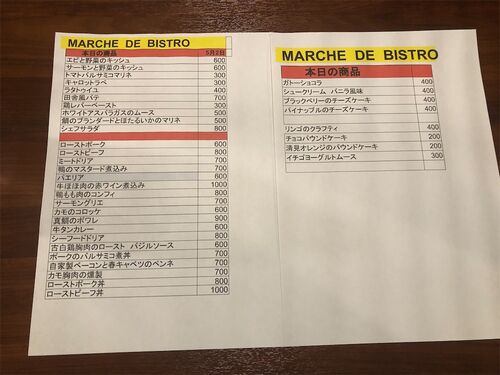 MARCHE DE BISTRO
本日の商品 5月2日
エビと野菜のキッシュ 600
サーモンと野菜のキッシュ 600
トマトバルサミコマリネ 300
キャロットラペ 300
ラタトゥイユ 400
田舎風パテ 700
鶏レバーペースト 300
ホワイトアスパラガスのムース 500
鯛のブランダードとほたるいかのマリネ 500
シェフサラダ 800
ローストポーク 600
ローストビーフ 800
ミートドリア 700
鴨のマスタード煮込み 700
パエリア 600
牛ほほ肉の赤ワイン煮込み 1000
鴨もも肉のコンフィ 800
サーモングリエ 700
カモのコロッケ 600
真鯛のポワレ 900
牛タンカレー 600
シーフードドリア 800
古白鶏胸肉のロースト バジルソース 600
ポークのバルサミコ煮丼 700
自家製ベーコンと春キャベツのペンネ 700
カモ胸肉の燻製 700
ローストポーク丼 800
ローストビーフ丼 1000
MARCHE DE BISTRO
本日の商品
ガトーショコラ 400
シュークリーム バニラ風味 400
ブラックベリーのチーズケーキ 400
パイナップルのチーズケーキ 400
リンゴのクラフティ 400
チョコパウンドケーキ 200
清見オレンジのパウンドケーキ 200
イチゴヨーグルトムース 300